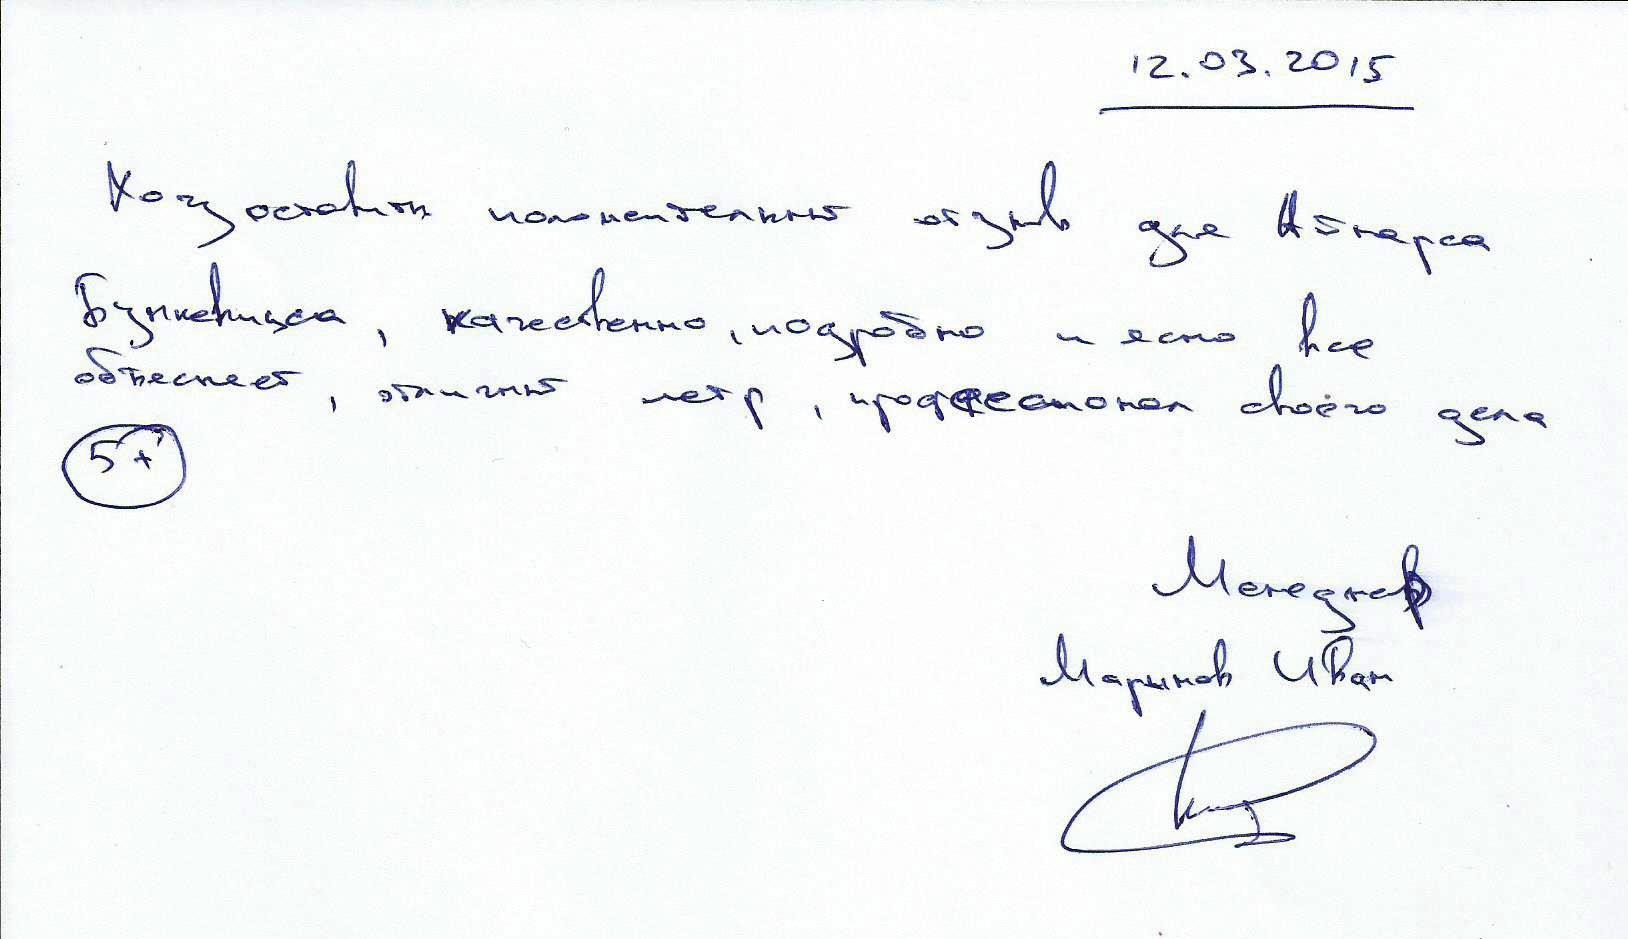 12.03.2015
Хочу оставить положительный отзыв для Айнарса
Бункевицса, качественно, подробно и ясно все
объясняет, отличный метр, професионал своёго дела
5+
Менеджер
Марынов Иван